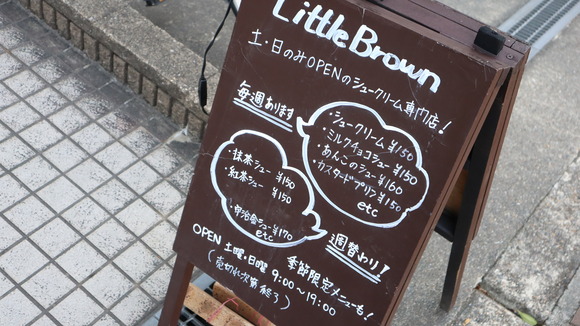 Little Brown
土・日のみOPENのシュークリーム専門店!
毎週あります
・シュークリーム ¥150
・ミルクチョコシュー ¥150
・あんこのシュー ¥160
・カスタードプリン ¥150
etc
・抹茶シュー ¥150
・紅茶シュー ¥150
¥170
etc
週替わり!
季節限定メニューも!
OPEN 土曜・日曜 9:00〜19:00
(売切れ次第終了)